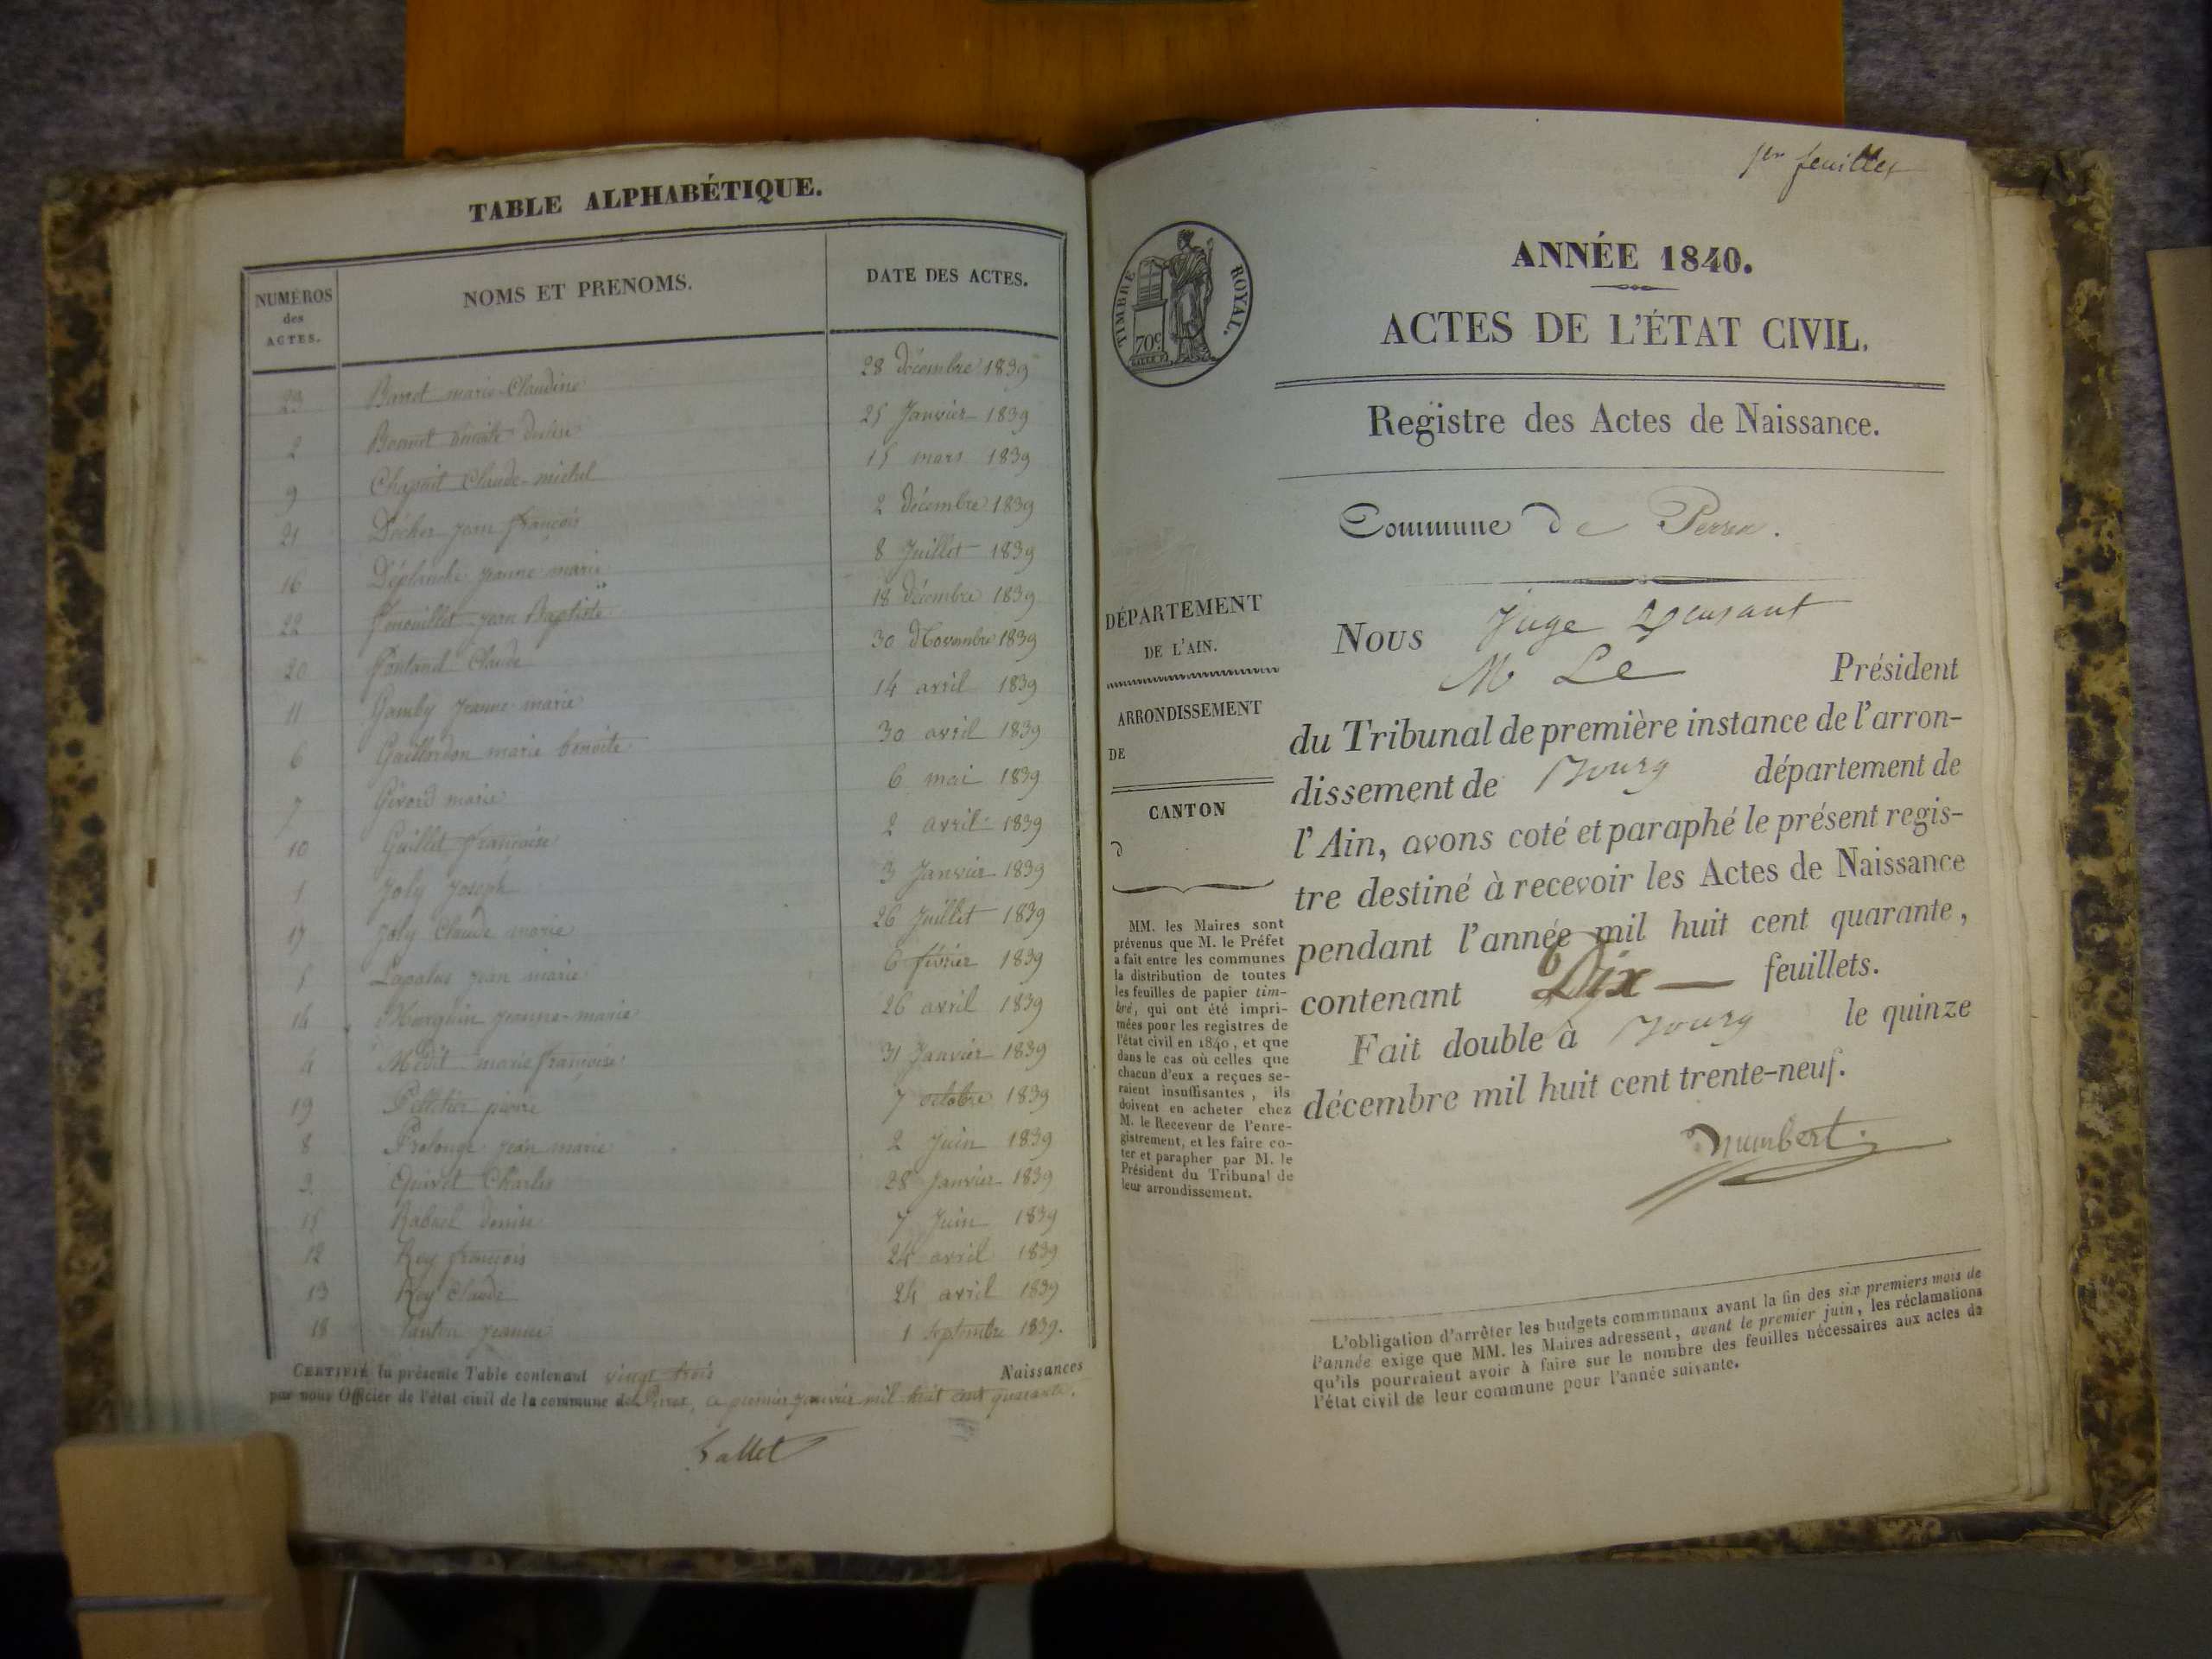 TABLE ALPHABÉTIQUE.
NUMÉROS des ACTES. NOMS ET PRENOMS. DATE DES ACTES.
23 Barret marie-Claudine 28 décembre 1839
2 benoite 25 Janvier 1839
9 Claude-michel 15 mars 1839
21 Jean françois 2 décembre 1839
16 Jeanne marie 8 Juillet 1839
22 Jean Baptiste 18 décembre 1839
20 Claude 30 Novembre 1839
11 Gamby Jeanne marie 14 avril 1839
6 marie benoite 30 avril 1839
7 marie 6 mai 1839
10 Gaillet françoise 2 avril 1839
1 Joly Joseph 3 Janvier 1839
17 Joly Claude marie 26 Juillet 1839
5 Lapalus jean marie 6 février 1839
14 Jeanne-marie 26 avril 1839
4 marie françoise 31 Janvier 1839
19 Pelletier pierre 7 octobre 1839
8 jean marie 2 Juin 1839
3 Charles 28 Janvier 1839
15 Rabuel denise 7 Juin 1839
12 Rey françois 24 avril 1839
13 Rey Claude 24 avril 1839
18 Jeanne 1 septembre 1839.
CERTIFIÉ la présente Table contenant vingt trois Naissances
par nous Officier de l'état civil de la commune de Perrex, ce premier janvier mil huit cent quarante.
1er feuillet
TIMBRE ROYAL.
70c
ANNÉE 1840.
ACTES DE L'ÉTAT CIVIL.
Registre des Actes de Naissance.
Commune de Perrex.
DÉPARTEMENT
DE L'AIN.
ARRONDISSEMENT
DE
CANTON
d
MM. les Maires sont
prévenus que M. le Préfet
a fait entre les communes
la distribution de toutes
les feuilles de papier tim-
bré, qui ont été impri-
mées pour les registres de
l'état civil en 1840, et que
dans le cas où celles que
chacun d'eux a reçues se-
raient insuffisantes, ils
doivent en acheter chez
M. le Receveur de l'enre-
gistrement, et les faire co-
ter et parapher par M. le
Président du Tribunal de
leur arrondissement.
Nous Juge
M Le Président
du Tribunal de première instance de l'arron-
dissement de Bourg département de
l'Ain, avons coté et paraphé le présent regis-
tre destiné à recevoir les Actes de Naissance
pendant l'année mil huit cent quarante,
contenant Dix feuillets.
Fait double à Bourg le quinze
décembre mil huit cent trente-neuf.
Humbert
L'obligation d'arrêter les budgets communaux avant la fin des six premiers mois de
l'année exige que MM. les Maires adressent, avant le premier juin, les réclamations
qu'ils pourraient avoir à faire sur le nombre des feuilles nécessaires aux actes de
l'état civil de leur commune pour l'année suivante.